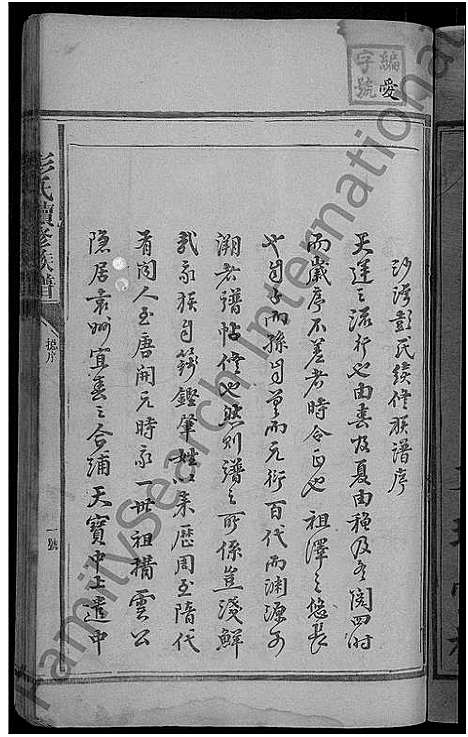 編愛字號
沙灣彭氏續修族譜序
天運之流行也由春及夏由秋及冬閱四時
而歲序不差者時令正也祖澤之悠長
也自子而孫自曾而元衍百代而淵源可
溯者譜帖修也然則譜之所係豈淺鮮
哉我族自籛鏗肇姓以來歷周至隋代
有聞人至唐開元時我一世祖構雲公
隱居袁州宜春之合浦天寶中上遣中
彭氏續修族譜
序
一號
FamilySearch International